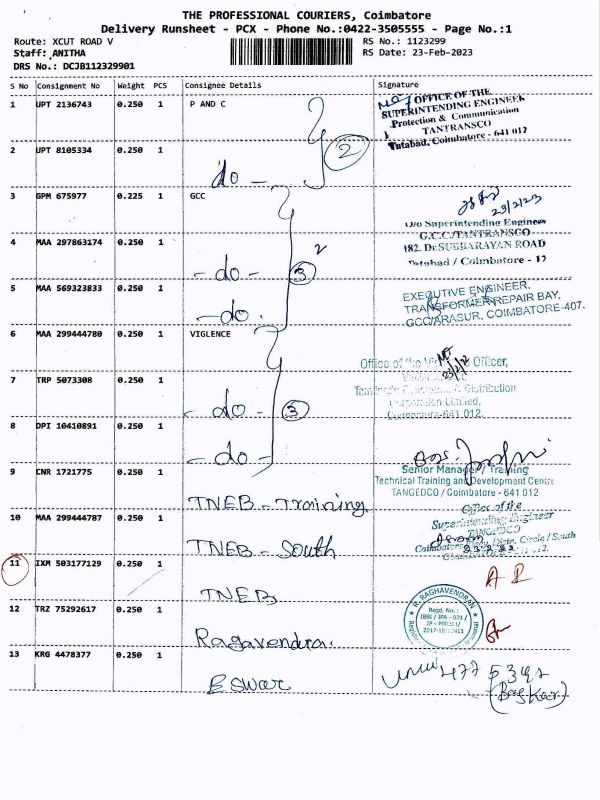 THE PROFESSIONAL COURIERS, Coimbatore
Delivery Runsheet - PCX - Phone No.:0422-3505555 - Page No.:1
Route: XCUT ROAD V RS No.: 1123299
Staff: ANITHA RS Date: 23-Feb-2023
DRS No.: DCJB112329901
S No Consignment No Weight PCS Consignee Details Signature
1 UPT 2136743 0.250 1 P AND C
OFFICE OF THE
SUPERINTENDING ENGINEER
Protection & Communication
TANTRANSCO
Tatabad, Coimbatore - 641 012
2 UPT 8105334 0.250 1 do - 2
3 GPM 675977 0.225 1 GCC
23/2/23
O/o Superintending Engineer
G.C.C./TANTRANSCO
182, Dr.SUBBARAYAN ROAD
Tatabad / Coimbatore - 12
4 MAA 297863174 0.250 1 - do - 3 2
5 MAA 569323833 0.250 1 - do -
EXECUTIVE ENGINEER,
TRANSFORMER REPAIR BAY,
GCC/ARASUR, COIMBATORE-407.
6 MAA 299444780 0.250 1 VIGLENCE
Office of the Officer,
Distribution
Corporation Limited,
641 012.
7 TRP 5073308 0.250 1 - do - 3
8 DPI 10410891 0.250 1 - do -
9 CNR 1721775 0.250 1 TNEB - Training
Senior Manager / Training
Technical Training and Development Centre
TANGEDCO / Coimbatore - 641 012
10 MAA 299444787 0.250 1 TNEB - South
Office of the
Superintending Engineer
TANGEDCO
Circle / South
11 IXM 503177129 0.250 1 TNEB
12 TRZ 75292617 0.250 1 Ragavendra
R. RAGHAVENDRAN
Regd. No.:
13 KRG 4478377 0.250 1 Eswar